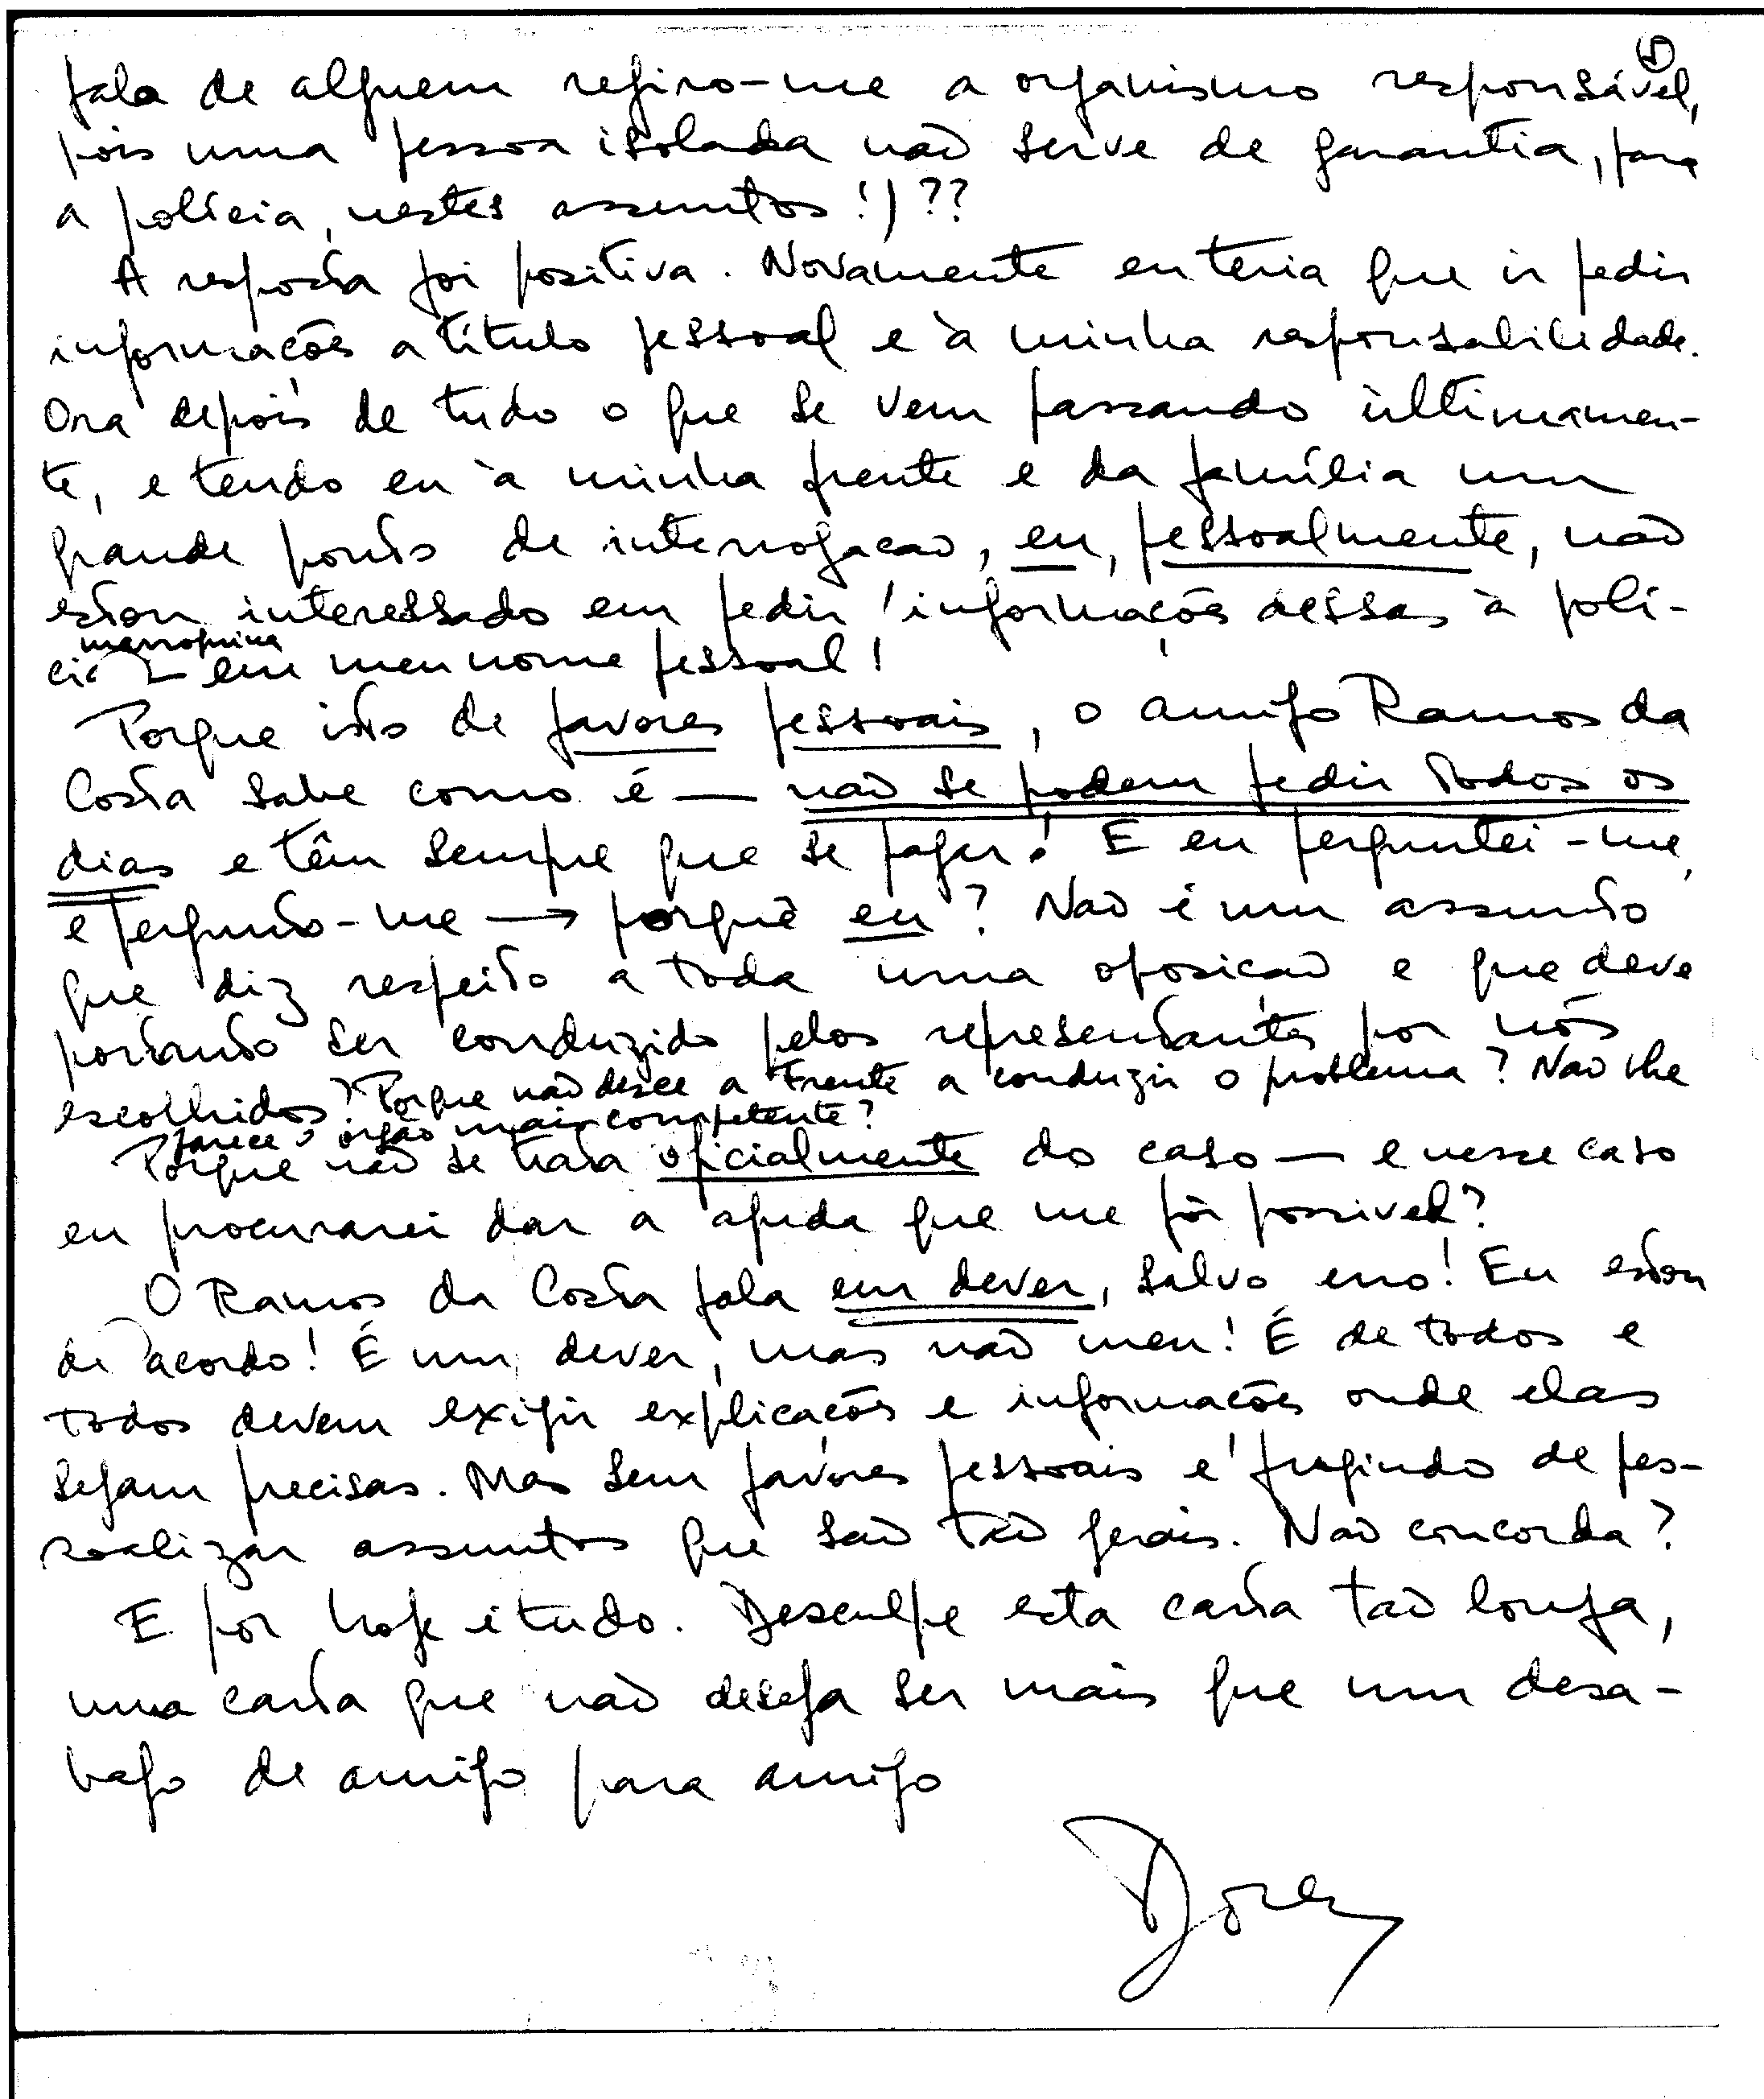 fala de alguem refiro-me a organismo responsável,
pois uma pessoa isolada não serve de garantia, para
a polícia, nestes assuntos!)??
A resposta foi positiva. Novamente eu teria que ir pedir
informações a título pessoal e à minha responsabilidade.
Ora depois de tudo o que se vem passando ùltimamen-
te, e tendo eu à minha frente e da família um
grande ponto de interrogação, eu, pessoalmente, não
estou interessado em pedir informações dessas à polí-
cia marroquina — em meu nome pessoal!
Porque isto de favores pessoais, o amigo Ramos da
Costa sabe como é — não se podem pedir todos os
dias e têm sempre que se pagar! E eu perguntei-me,
e pergunto-me → porquê eu? Não é um assunto
que diz respeito a toda uma oposição e que deve
portanto ser conduzido pelos representantes por nós
escolhidos? Porque não desce a Frente a conduzir o problema? Não lhe
parece o órgão mais competente?
Porque não se trata oficialmente do caso — e nesse caso
eu procurarei dar a ajuda que me fôr possivel?
O Ramos da Costa fala em dever, salvo erro! Eu estou
de acordo! É um dever, mas não meu! É de todos e
todos devem exigir explicações e informações onde elas
sejam precisas. Mas sem favores pessoais e fugindo de pes-
soalizar assuntos que são tão gerais. Não concorda?
E por hoje é tudo. Desculpe esta carta tão longa,
uma carta que não deseja ser mais que um desa-
bafo de amigo para amigo